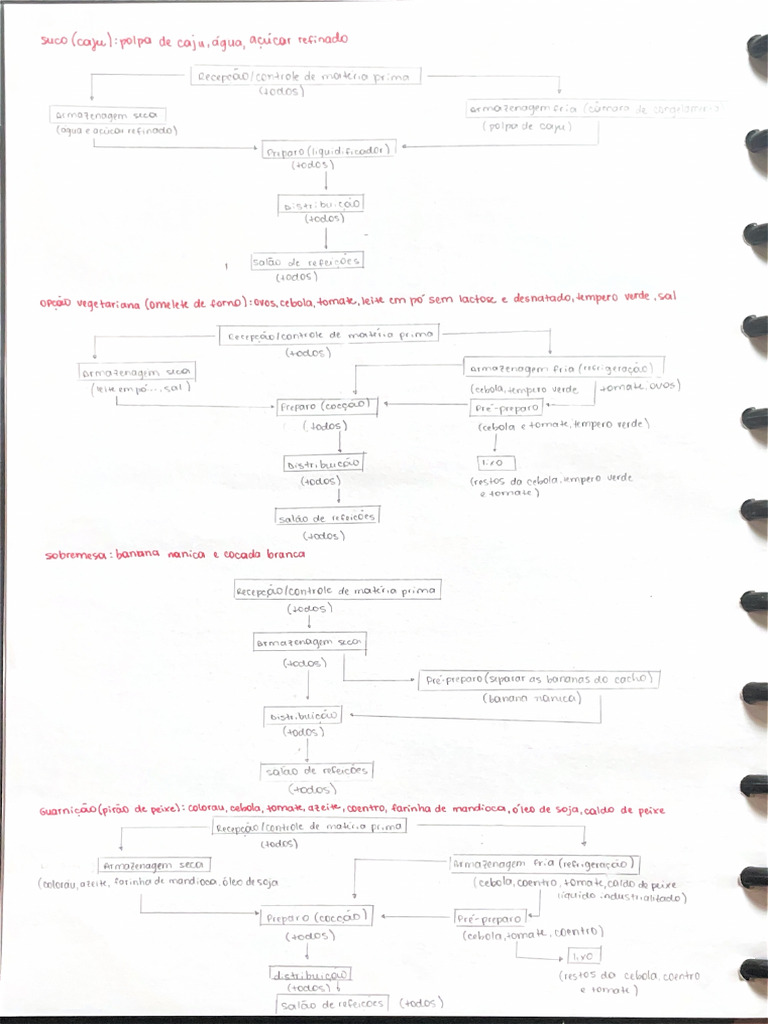 suco (caju): polpa de caju, água, açúcar refinado
Recepção/controle de matéria prima
(todos)
Armazenagem seca
(agua e açúcar refinado)
Armazenagem fria (câmara de congelamento)
(polpa de caju)
Preparo (liquidificador)
(todos)
Distribuição
(todos)
salão de refeições
(todos)
opção vegetariana (omelete de forno): ovos, cebola, tomate, leite em pó sem lactose e desnatado, tempero verde, sal
Recepção/controle de matéria prima
(todos)
Armazenagem seca
(leite em pó..., sal)
Armazenagem fria (refrigeração)
(cebola, tempero verde tomate, ovos)
Preparo (cocção)
(todos)
Pré-preparo
(cebola e tomate, tempero verde)
Distribuição
(todos)
lixo
(restos da cebola, tempero verde
e tomate)
salão de refeições
(todos)
sobremesa: banana nanica e cocada branca
Recepção/controle de matéria prima
(todos)
Armazenagem seca
(todos)
Pré-preparo (separar as bananas do cacho)
(banana nanica)
Distribuição
(todos)
salão de refeições
(todos)
Guarnição (pirão de peixe): colorau, cebola, tomate, azeite, coentro, farinha de mandioca, óleo de soja, caldo de peixe
Recepção/controle de matéria prima
(todos)
Armazenagem seca
(colorau, azeite, farinha de mandioca, óleo de soja
Armazenagem fria (refrigeração)
(cebola, coentro, tomate, caldo de peixe
líquido industrializado)
Preparo (cocção)
(todos)
Pré-preparo
(cebola, tomate, coentro)
lixo
(restos da cebola, coentro
e tomate)
distribuição
(todos)
salão de refeições (todos)